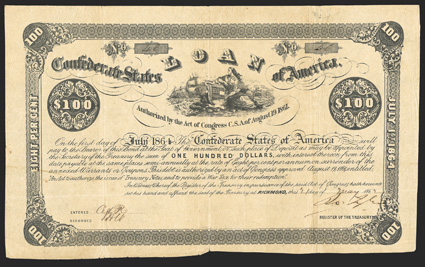 100
100
No
No
Confederate States
LOAN
of America.
Authorized by the Act of Congress C.S.A. of August 19, 1861.
$100
$100
EIGHT PER CENT
JULY 1ST 1864
On the first day of July 1864 The Confederate States of America will
pay to the Bearer of this Bond at the Seat of Government, or at such place of deposit as may be appointed by
the Secretary of the Treasury the sum of ONE HUNDRED DOLLARS, with interest thereon from this
date payable at the same places semi-annually at the rate of Eight per cent per annum on surrender of the
annexed Warrants or Coupons. This debt is authorized by an act of Congress approved August 19, 1861, entitled
An Act to authorize the issue of Treasury Notes, and to provide a War Tax for their redemption.
In Witness whereof the Register of the Treasury in pursuance of the said Act of Congress hath hereunto
set his hand and affixed the seal of the Treasury at RICHMOND, this 2 day of May 186
ENTERED
RECORDED
REGISTER OF THE TREASURY
100
100